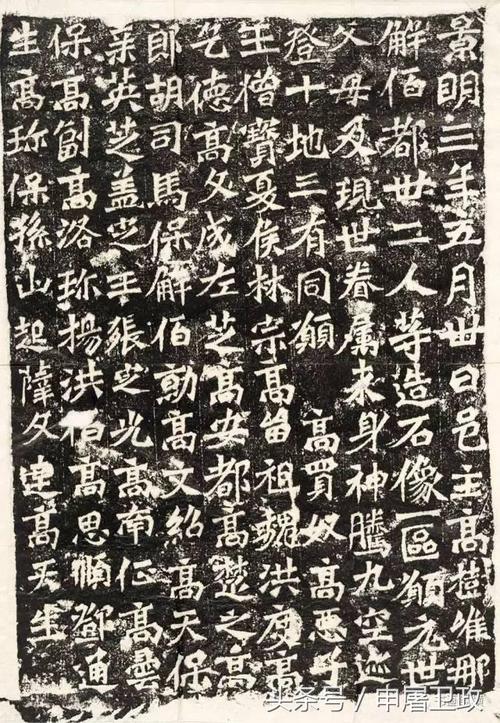 景明三年五月卅日邑主高樹唯那
解佰都卅二人等造石像一區願元世
父母及現世眷屬來身神騰九空迹
登十地三有同願 高買奴高惡子
王僧寶夏侯林宗高留祖魏洪度高
乞德高文成左芝高安都高楚之高
郎胡司馬保解佰勍高文紹高天保
秉英芝盖芝王張芝光高南征高曇
保高副高洛珎楊洪佰高思順鄧通
生高珎保孫山起薛文達高天生
头条号 / 申屠卫政